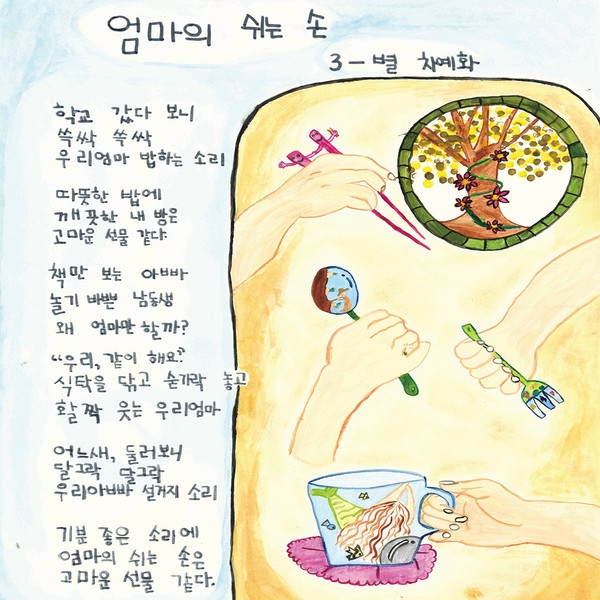 엄마의 쉬는 손
3-별 차예화
학교 갔다 보니
쓱싹 쓱싹
우리엄마 밥하는 소리
따뜻한 밥에
깨끗한 내 방은
고마운 선물 같다.
책만 보는 아빠
놀기 바쁜 남동생
왜 엄마만 할까?
"우리, 같이 해요?"
식탁을 닦고 숟가락 놓고
활짝 웃는 우리엄마
어느새, 둘러보니
달그락 달그락
우리아빠 설거지 소리
기분 좋은 소리에
엄마의 쉬는 손은
고마운 선물 같다.